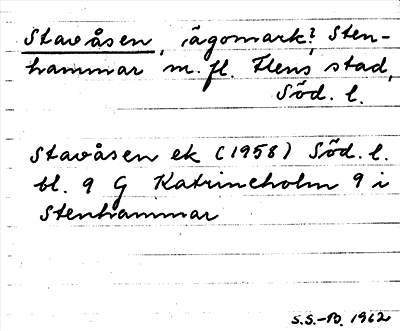 Stavåsen, ägomark?, Sten-
hammar m. fl. Flens stad,
Söd. l.
Stavåsen ek (1958) Söd. l.
bl. 9 G Katrineholm 9 i
Stenhammar
S.S.-B. 1962